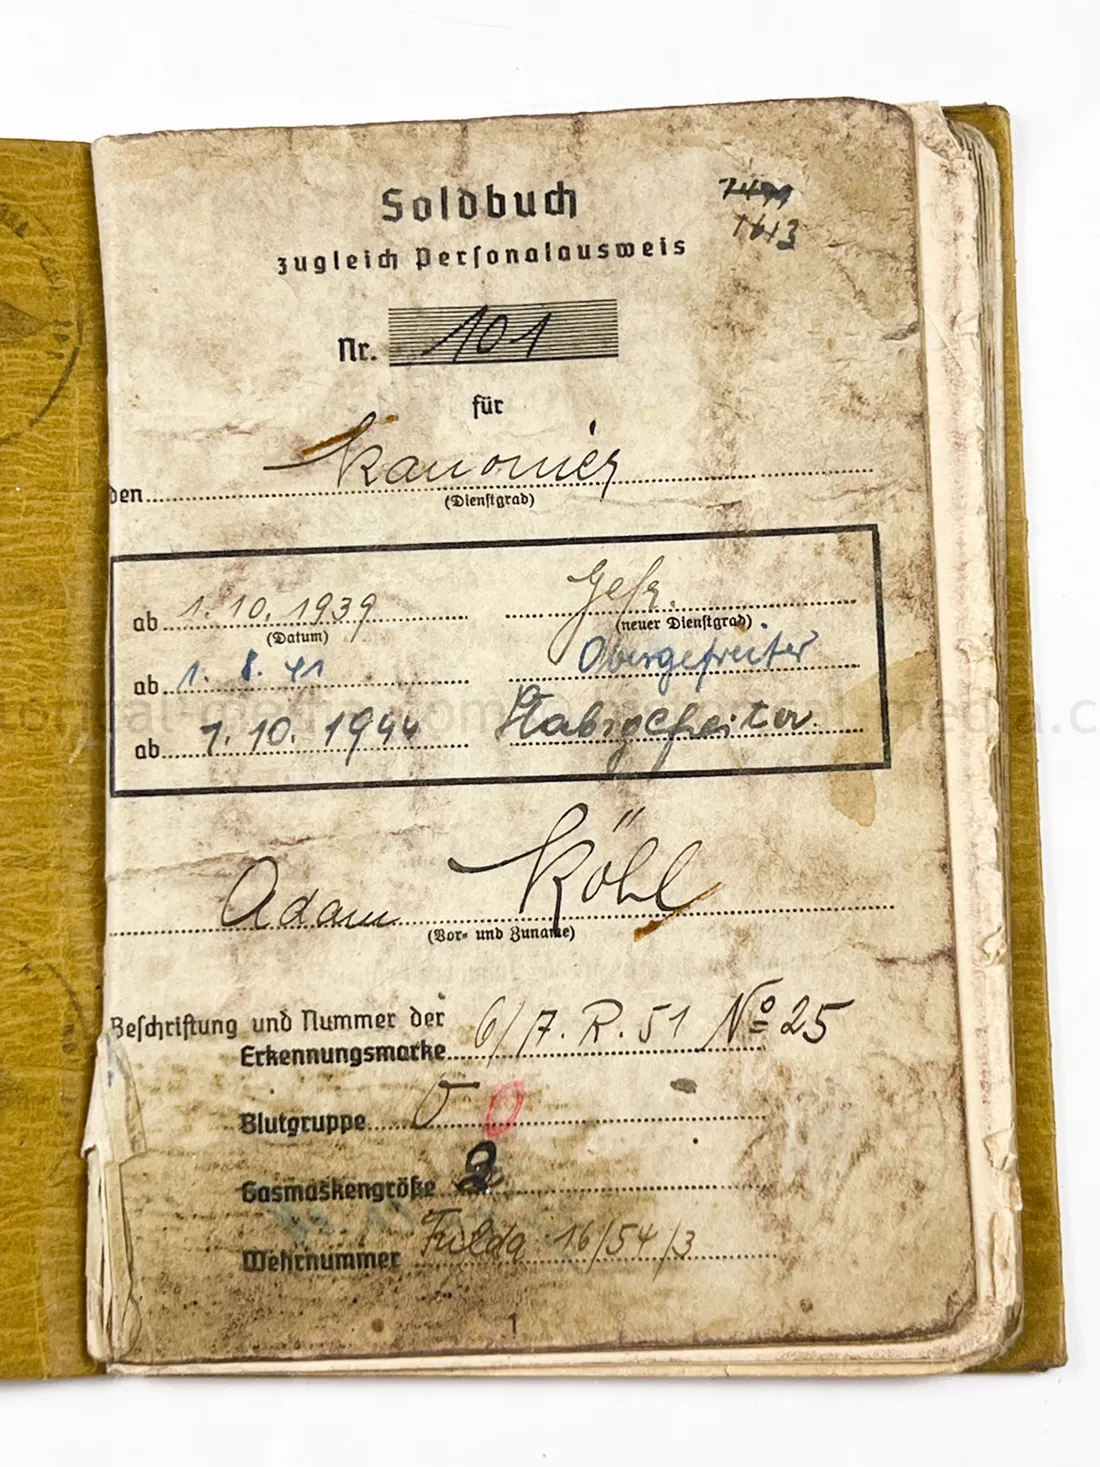 Soldbuch
1613
zugleich Personalausweis
Nr. 101
für
den Kanonier
(Dienstgrad)
ab 1.10.1939 Gefr.
(Datum) (neuer Dienstgrad)
ab 1.8.41 Obergefreiter
ab 1.10.1944 Stabsgefreiter
Adam Köhl
(Vor- und Zuname)
Beschriftung und Nummer der
Erkennungsmarke 6/7.R.51 No 25
Blutgruppe O O
Gasmaskengröße 2
Wehrnummer Fulda 16/54/3
1